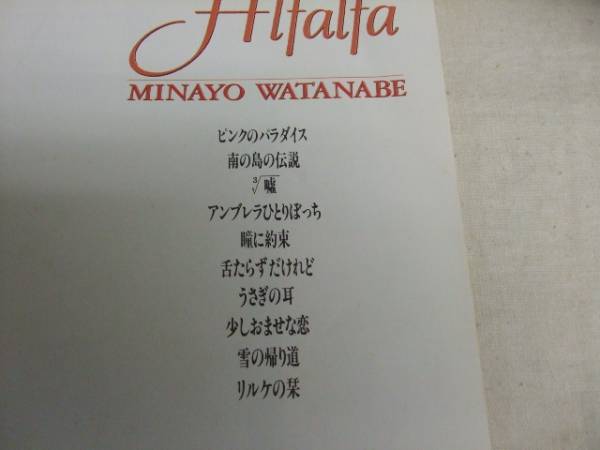 Alfalfa
MINAYO WATANABE
ピンクのパラダイス
南の島の伝説
³√嘘
アンブレラひとりぼっち
瞳に約束
舌たらずだけれど
うさぎの耳
少しおませな恋
雪の帰り道
リルケの栞